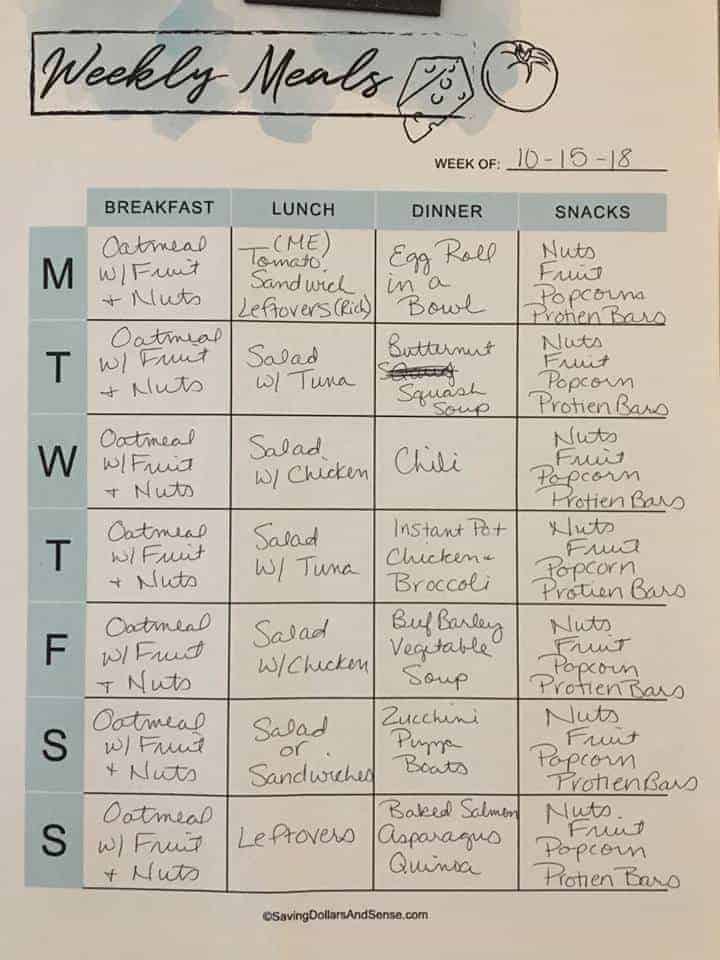 Weekly Meals
WEEK OF: 10-15-18
BREAKFAST LUNCH DINNER SNACKS
M
Oatmeal
w/ Fruit
+ Nuts
(ME)
Tomato
Sandwich
Leftovers (Rich)
Egg Roll
in a
Bowl
Nuts
Fruit
Popcorns
Protien Bars
T
Oatmeal
w/ Fruit
+ Nuts
Salad
w/ Tuna
Butternut
Squash
Soup
Nuts
Fruit
Popcorn
Protien Bars
W
Oatmeal
w/ Fruit
+ Nuts
Salad
w/ Chicken
Chili
Nuts
Fruit
Popcorn
Protien Bars
T
Oatmeal
w/ Fruit
+ Nuts
Salad
w/ Tuna
Instant Pot
Chicken +
Broccoli
Nuts
Fruit
Popcorn
Protien Bars
F
Oatmeal
w/ Fruit
+ Nuts
Salad
w/ Chicken
Beef Barley
Vegetable
Soup
Nuts
Fruit
Popcorn
Protien Bars
S
Oatmeal
w/ Fruit
+ Nuts
Salad
or
Sandwiches
Zucchini
Pizza
Boats
Nuts
Fruit
Popcorn
Protien Bars
S
Oatmeal
w/ Fruit
+ Nuts
Leftovers
Baked Salmon
Asparagus
Quinoa
Nuts.
Fruit
Popcorn
Protien Bars
©SavingDollarsAndSense.com